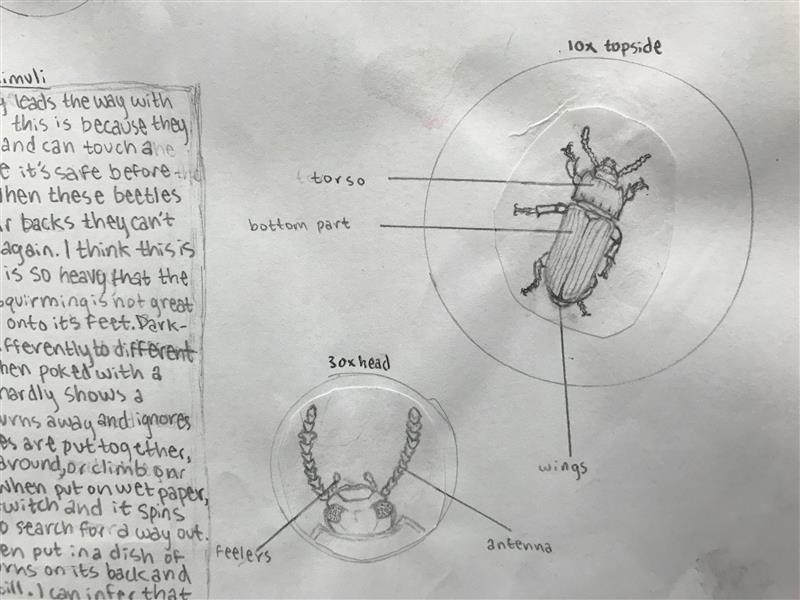 imuli
leads the way with
this is because they
and can touch a
e it's safe before
hen these beetles
r backs they can't
again. I think this is
is so heavy that the
squirming is not great
onto it's feet. Dark-
fferently to different
hen poked with a
hardly shows a
urns away and ignores
es are put together,
around, or climb on
When put on wet paper,
twitch and it spins
o search for a way out.
en put in a dish of
urns on its back and
till. I can infer that
10x topside
torso
bottom part
wings
30x head
feelers
antenna